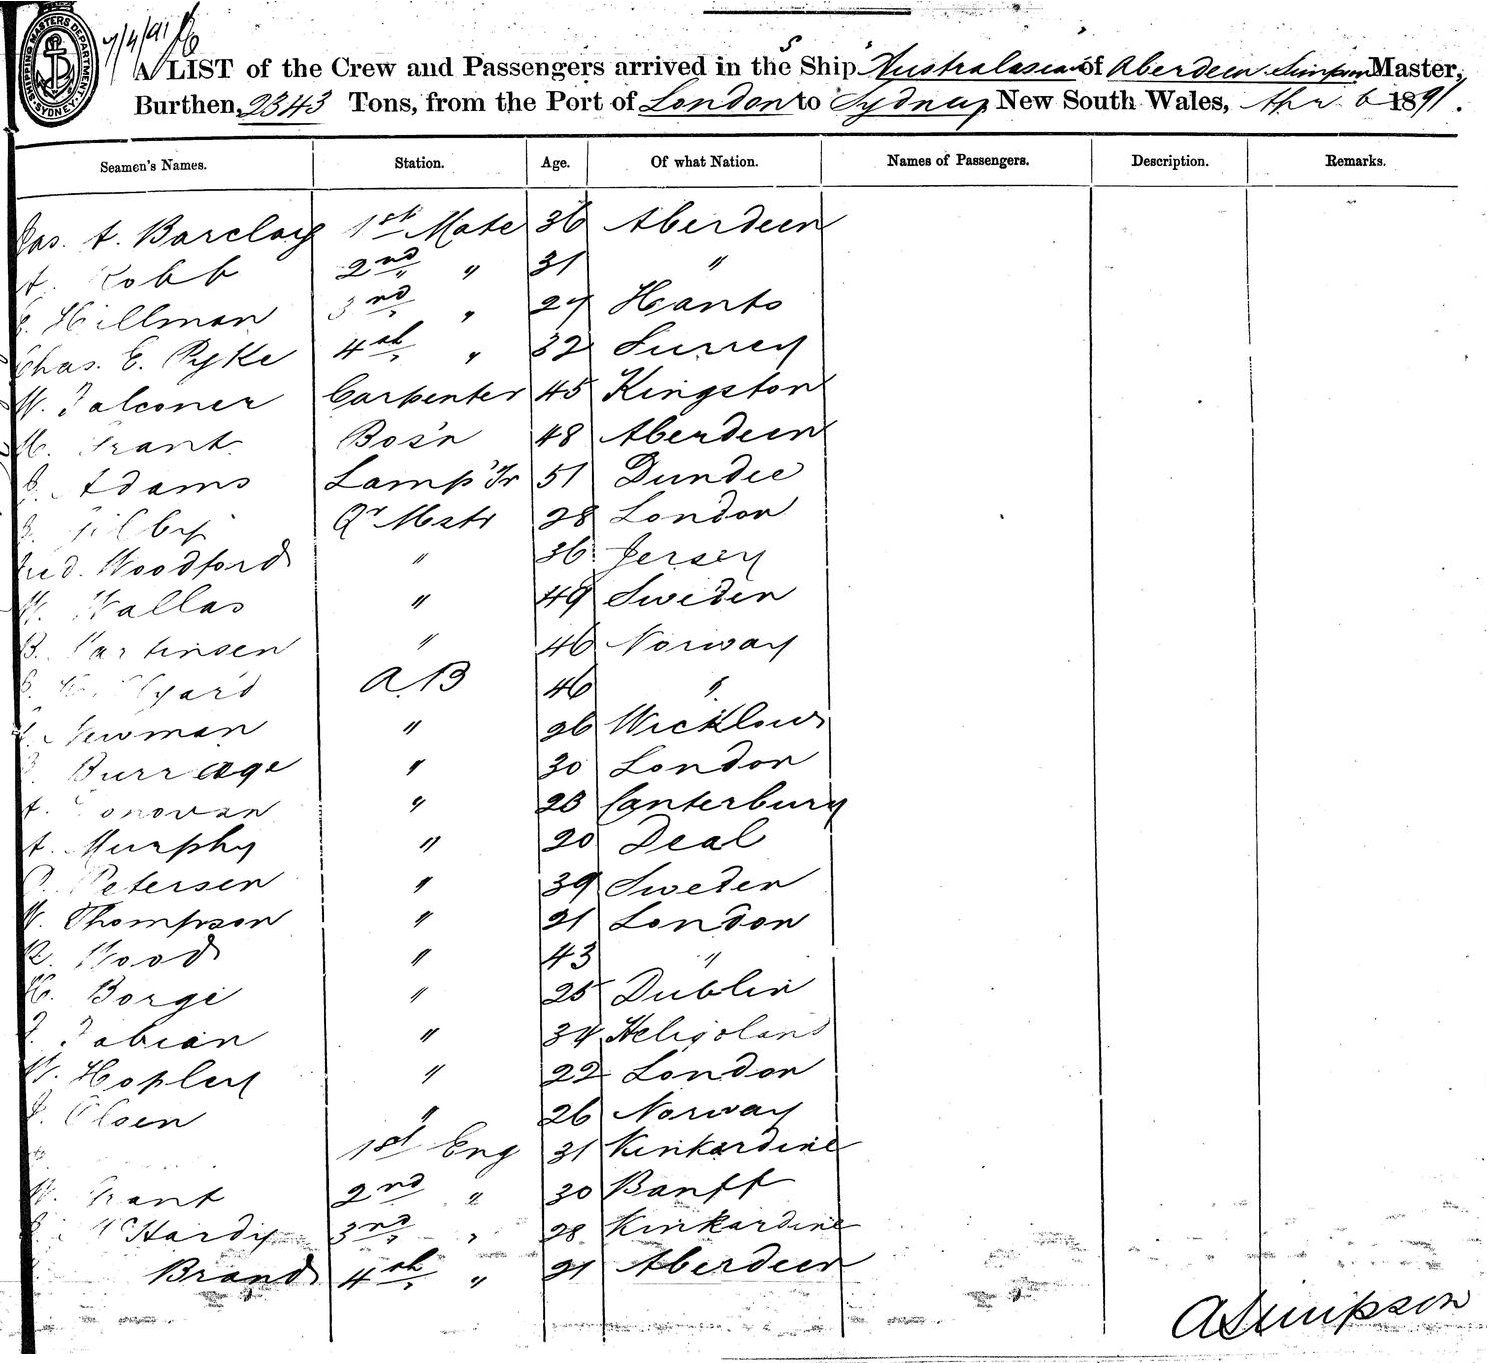 SHIPPING MASTERS DEPARTMENT SYDNEY
7/4/91
A LIST of the Crew and Passengers arrived in the S Ship Australasian of Aberdeen Simpson Master,
Burthen, 2343 Tons, from the Port of London to Sydney, New South Wales, Apr. 6 1891.
Seamen's Names. Station. Age. Of what Nation. Names of Passengers. Description. Remarks.
Jas. A. Barclay 1st Mate 36 Aberdeen
A. Robb 2nd " 31 "
Hillman 3rd " 27 Hants
Chas. E. Pyke 4th " 32 Surrey
W. Falconer Carpenter 45 Kingston
Grant Bos'n 48 Aberdeen
Adams Lamp Tr 51 Dundee
Gilby Qr Mstr 28 London
Fred. Woodford " 36 Jersey
W. Wallas " 49 Sweden
B. Martinsen " 46 Norway
A.B 46 "
Newman " 26 Wicklow
Burrage " 30 London
A. Donovan " 23 Canterbury
A. Murphy " 20 Deal
Petersen " 39 Sweden
W. Thompson " 21 London
R. Wood " 43 "
H. Borge " 25 Dublin
F. Fabian " 34 Heligoland
W. Hopley " 22 London
Olsen " 26 Norway
1st Eng 31 Kinkardine
W. Grant 2nd " 30 Banff
McHardy 3rd " 28 Kinkardine
Brand 4th " 21 Aberdeen
A Simpson